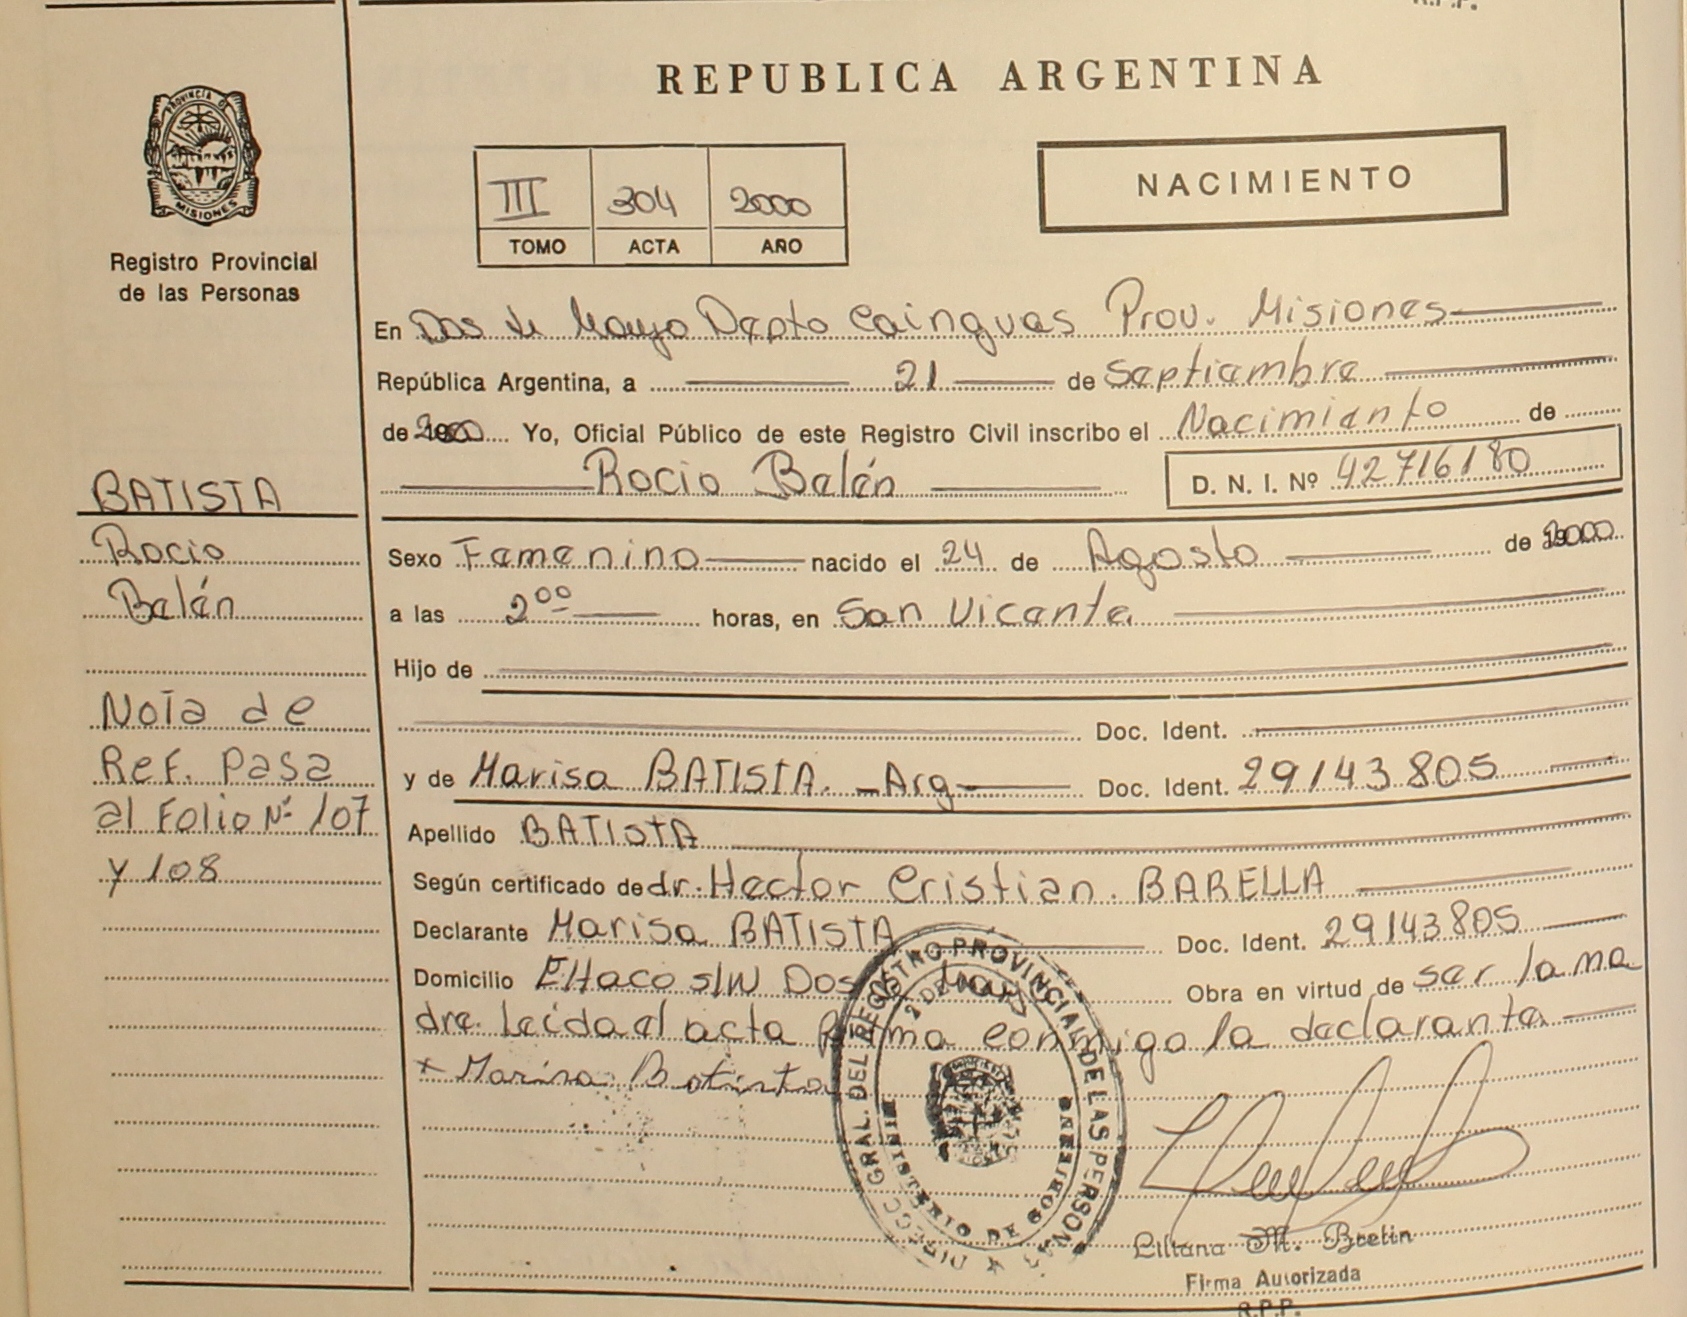 R.P.P.
REPUBLICA ARGENTINA
PROVINCIA DE
MISIONES
Registro Provincial
de las Personas
III 304 2000
TOMO ACTA AÑO
NACIMIENTO
En Dos de Mayo Depto Cainguas Prov. Misiones
República Argentina, a 21 de Septiembre
de 2000 Yo, Oficial Público de este Registro Civil inscribo el Nacimiento de
Rocio Belén D. N. I. Nº 42716180
BATISTA
Rocio
Belén
Sexo Femenino nacido el 24 de Agosto de 2000
a las 2 00 horas, en San Vicente
Hijo de
Doc. Ident.
Nota de
Ref. Pasa
al Folio Nº 107
y 108
y de Marisa BATISTA. _Arg Doc. Ident. 29143805
Apellido BATISTA
Según certificado de dr. Hector Cristian. BARELLA
Declarante Marisa BATISTA Doc. Ident. 29143805
Domicilio s/N Dos de Mayo Obra en virtud de ser la ma
dre. Leida el acta firma conmigo la declarante
+ Marisa Batista
GRAL. DEL REGISTRO PROVINCIAL DE LAS PERSONAS
2 DE MAYO
MINISTERIO DE GOBIERNO
Liliana M. Bretin
Firma Autorizada
R.P.P.